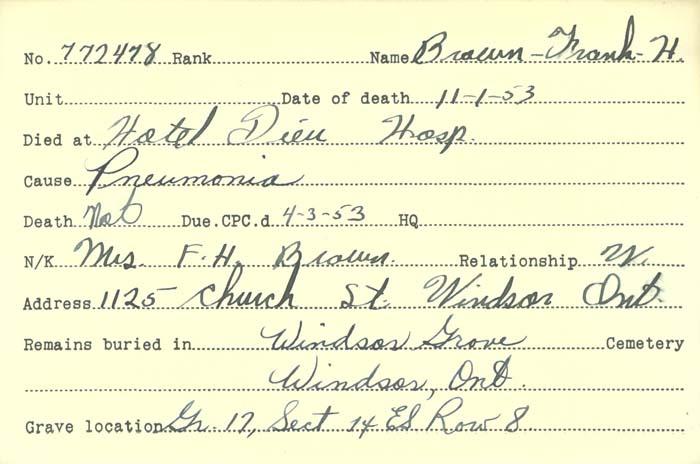 No. 772478 Rank Name Brown-Frank-H.
Unit Date of death 11-1-53
Died at Hotel Dieu Hosp.
Cause Pneumonia
Death Not Due. CPC.d 4-3-53 HQ
N/K Mrs. F.H. Brown. Relationship W.
Address 1125 Church St. Windsor Ont.
Remains buried in Windsor Grove Cemetery
Windsor, Ont.
Grave location Gr. 17, Sect 14 ES Row 8